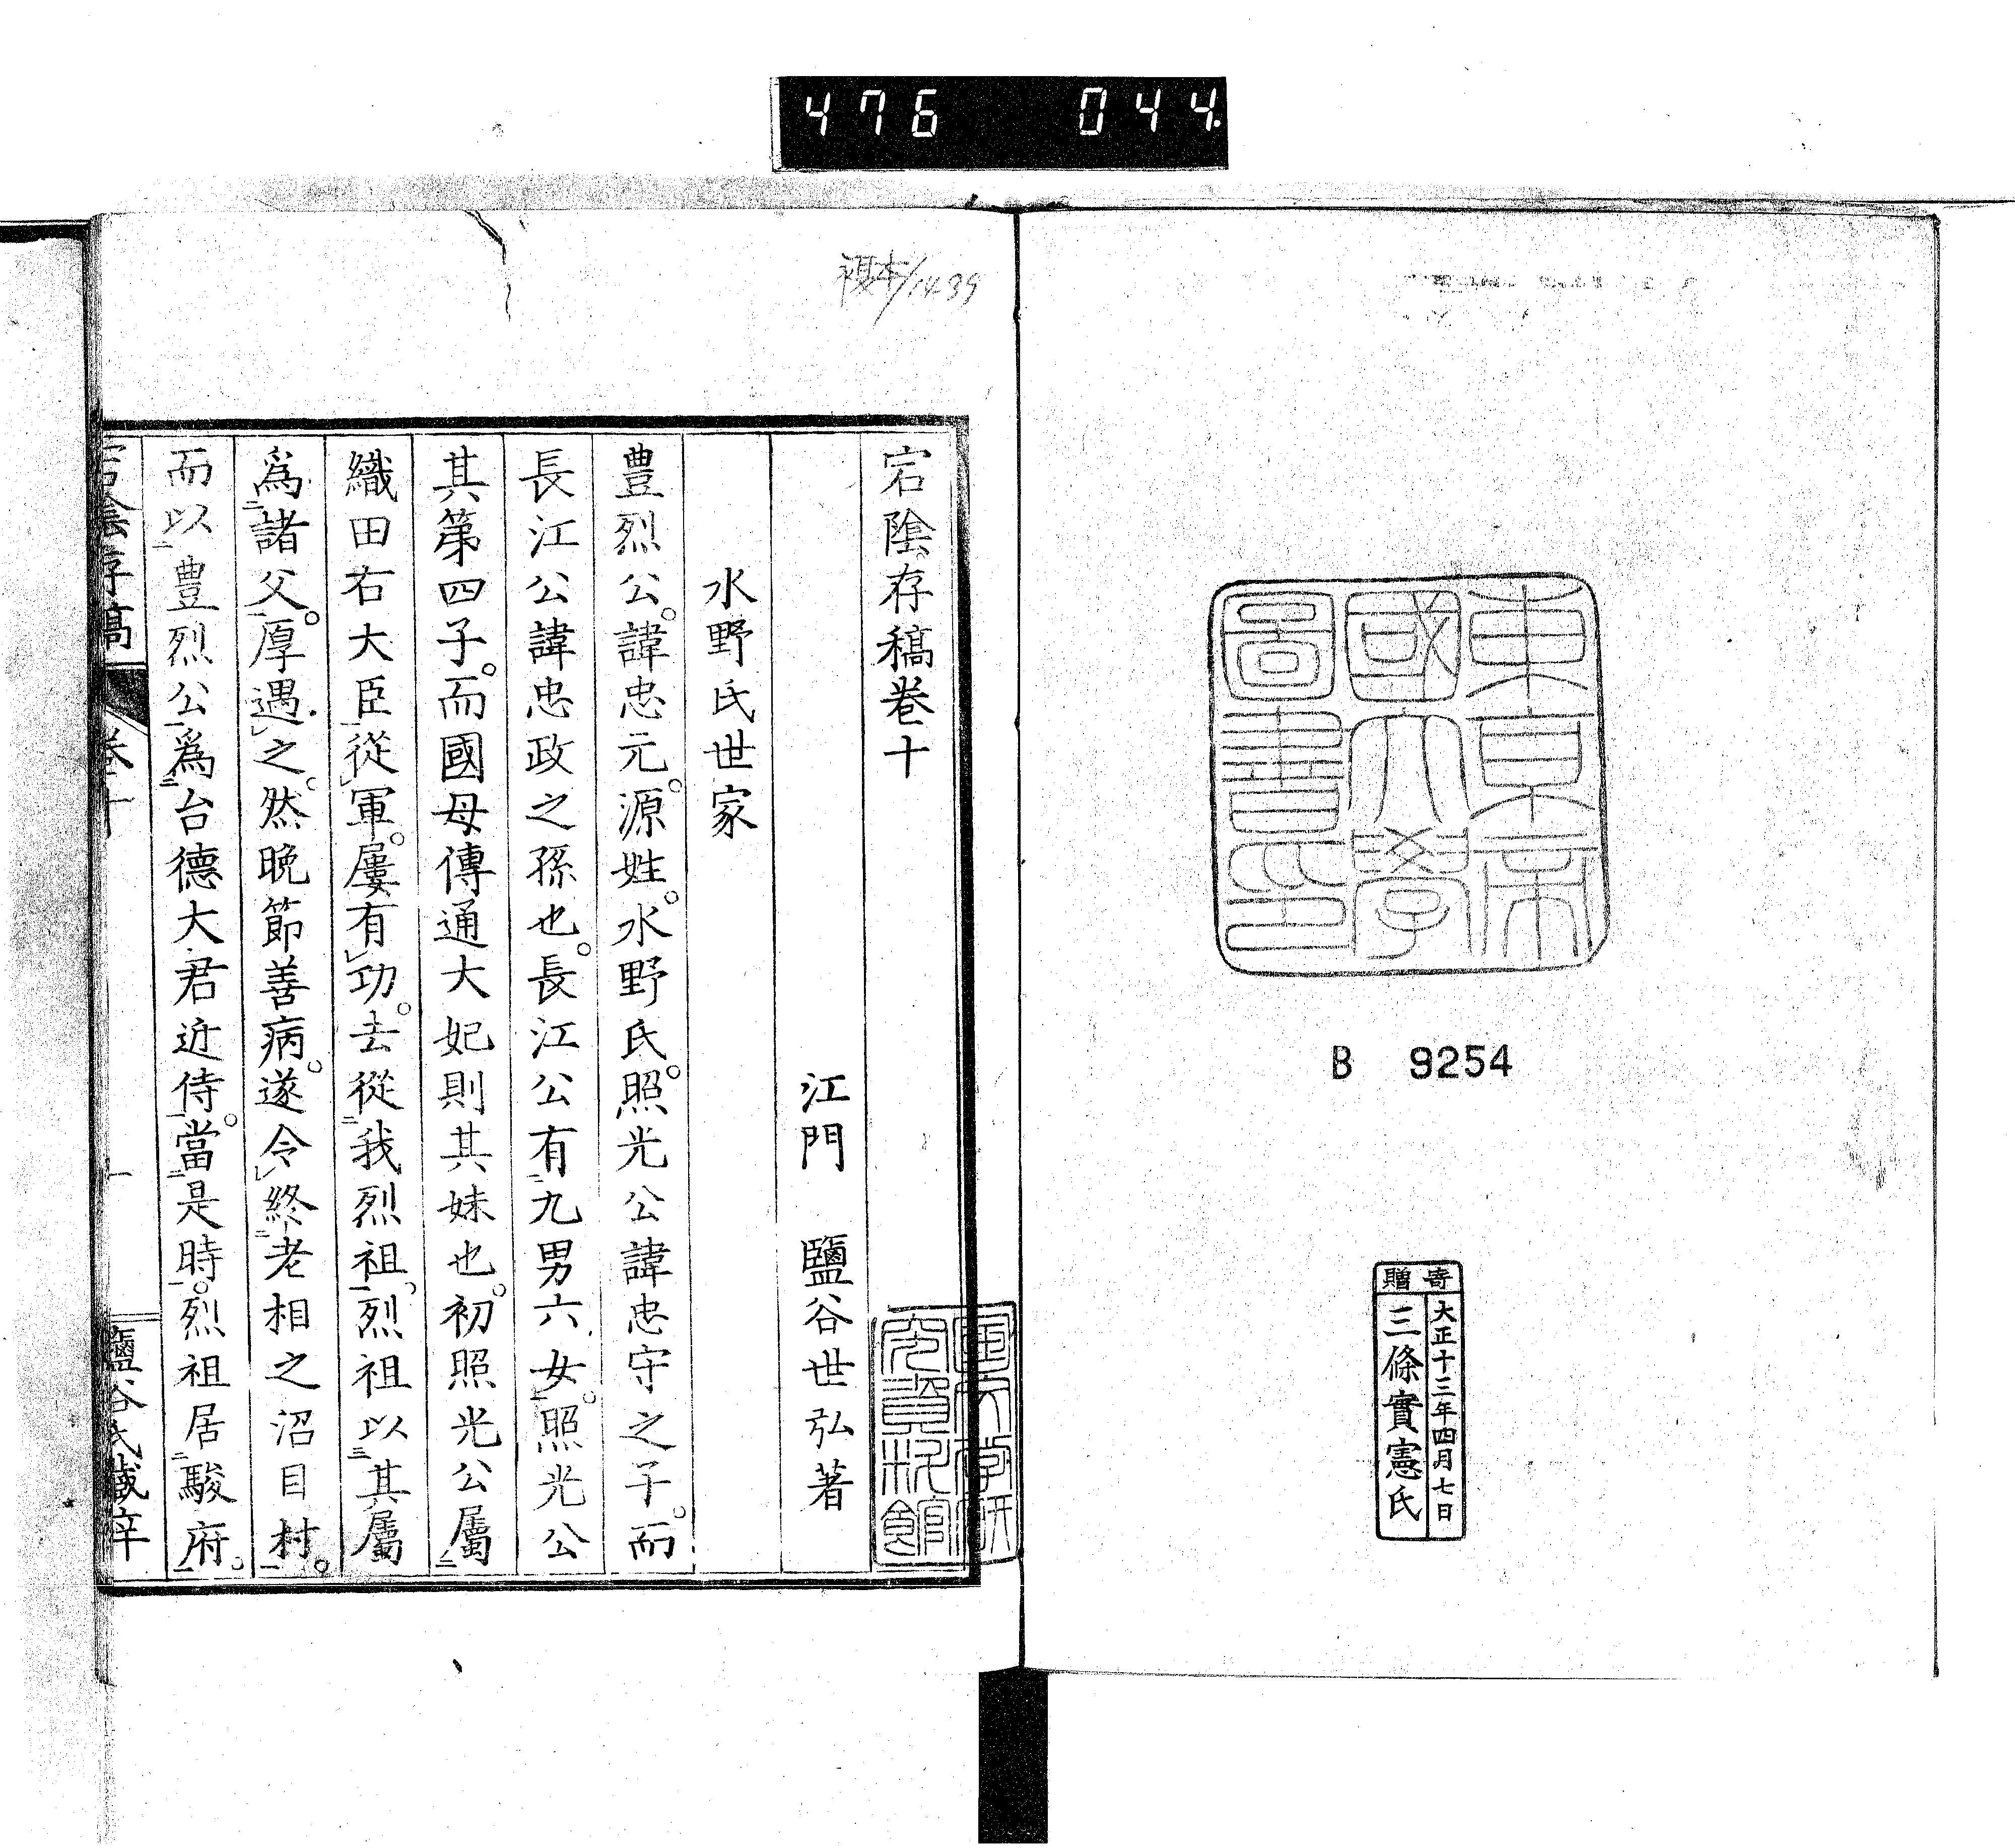 476 044
東京帝
國大學
圖書印
B 9254
寄贈
大正十三年四月七日
三條實憲氏
複本/1439
宕陰存稿卷十
江門 鹽谷世弘著
水野氏世家
豊烈公。諱忠元。源姓。水野氏。照光公諱忠守之子。而
長江公諱忠政之孫也。長江公有二九男六女一。照光公
其第四子。而國母傳通大妃則其妹也。初照光公屬二
織田右大臣一從レ軍。屢有レ功。去從二我烈祖一。烈祖以三其屬
爲二諸父一。厚遇レ之。然晩節善病。遂令レ終二老相之沼目村一。
而以二豊烈公一爲二台德大君近侍一。當二是時一。烈祖居二駿府一。
宕陰存稿 卷十 一 鹽谷氏藏梓